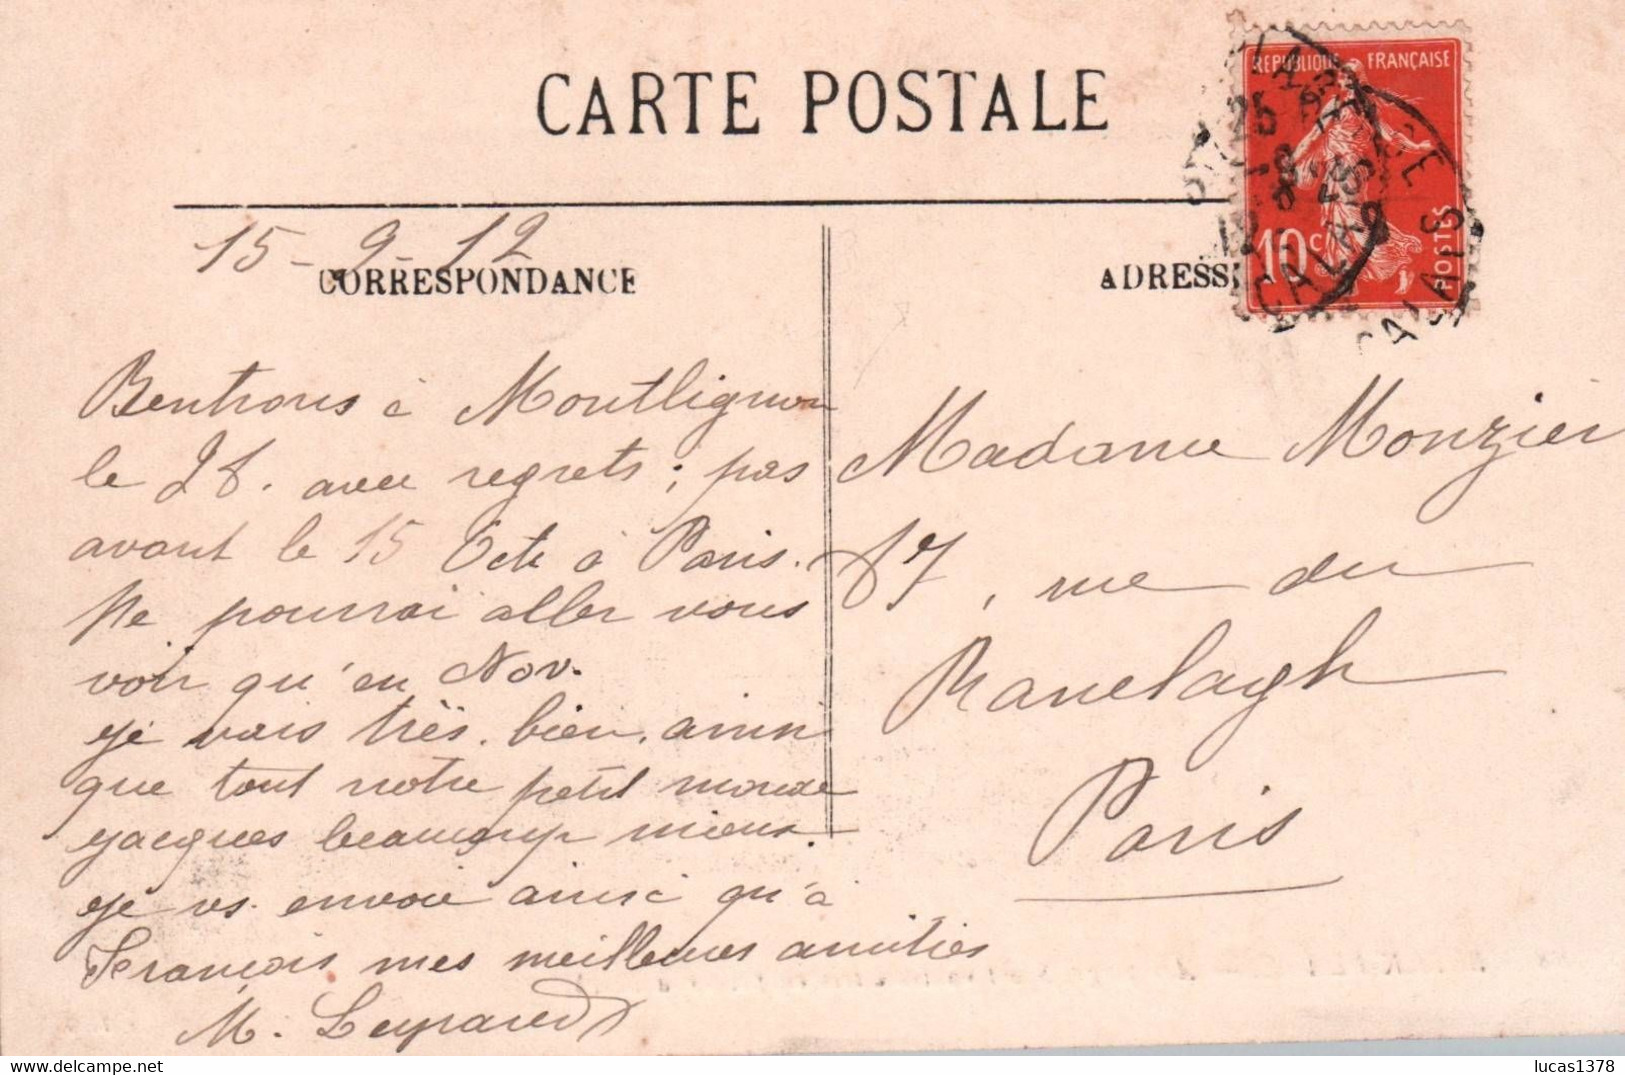 CARTE POSTALE
REPUBLIQUE FRANÇAISE
10c
POSTES
CALAIS
15-9-12
CORRESPONDANCE
ADRESS
Rentrons à Montlignon
le 28. avec regrets ; pas
avant le 15 Octe à Paris.
Ne pourrai aller vous
voir qu'en Nov.
Je vais très bien, ainsi
que tout notre petit monde
Jacques beaucoup mieux.
Je vs. envoie ainsi qu'à
François mes meilleures amitiés
M.
Madame Monzier
87, rue du
Ranelagh
Paris
lucas1378